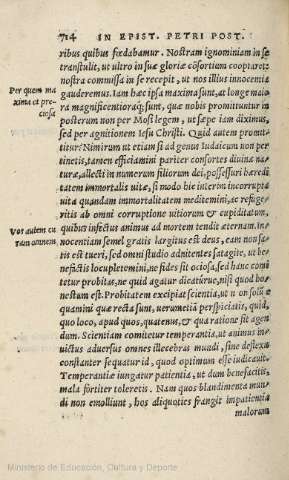 714 IN EPIST. PETRI POST.
ribus quibus fœdabamur. Nostram ignominiam in se
transtulit, ut ultro in suæ gloriæ cōsortium cooptaret:
nostra commissa in se recepit, ut nos illius innocentia
gauderemus. Iam hæc ipsa maxima sunt, at longe maio
ra magnificentioraq́; sunt, quæ nobis promittuntur in
Per quem ma
xima et pre-
ciosa
posterum non per Mosi legem, ut sæpe iam diximus,
sed per agnitionem Iesu Christi. Quid autem promit
titur? Nimirum ut etiam si ad genus Iudaicum non per
tinetis, tamen efficiamini pariter consortes diuinæ na-
turæ, allecti in numerum filiorum dei, possessuri hæredi
tatem immortalis uitæ, si modo hic interim incorrupta
uita quandam immortalitatem meditemini, ac refuge-
ritis ab omni corruptione uitiorum & cupiditatum,
Vos autem cu
ram omnem
quibus infectus animus ad mortem tendit æternam. In
nocentiam semel gratis largitus est deus, eam non sa-
tis est tueri, sed omni studio adnitentes satagite, ut be-
neficiis locupletemini, ne fides sit ociosa, sed hanc comi
tetur probitas, ne quid agatur dicaturue, nisi quod ho-
nestum est. Probitatem excipiat scientia, ut non solū se
quamini quæ recta sunt, uerumetiā perspiciatis, quid,
quo loco, apud quos, quatenus, & qua ratione sit agen
dum. Scientiam comitetur temperantia, ut animus in-
uictus aduersus omnes illecebras mundi, sine deflexu
constanter sequatur id, quod optimum esse iudicauit.
Temperantiæ iungatur patientia, ut dum benefacitis,
mala fortiter toleretis. Nam quos blandimenta mun-
di non emolliunt, hos aliquoties frangit impatientia
malorum
Ministerio de Educación, Cultura y Deporte